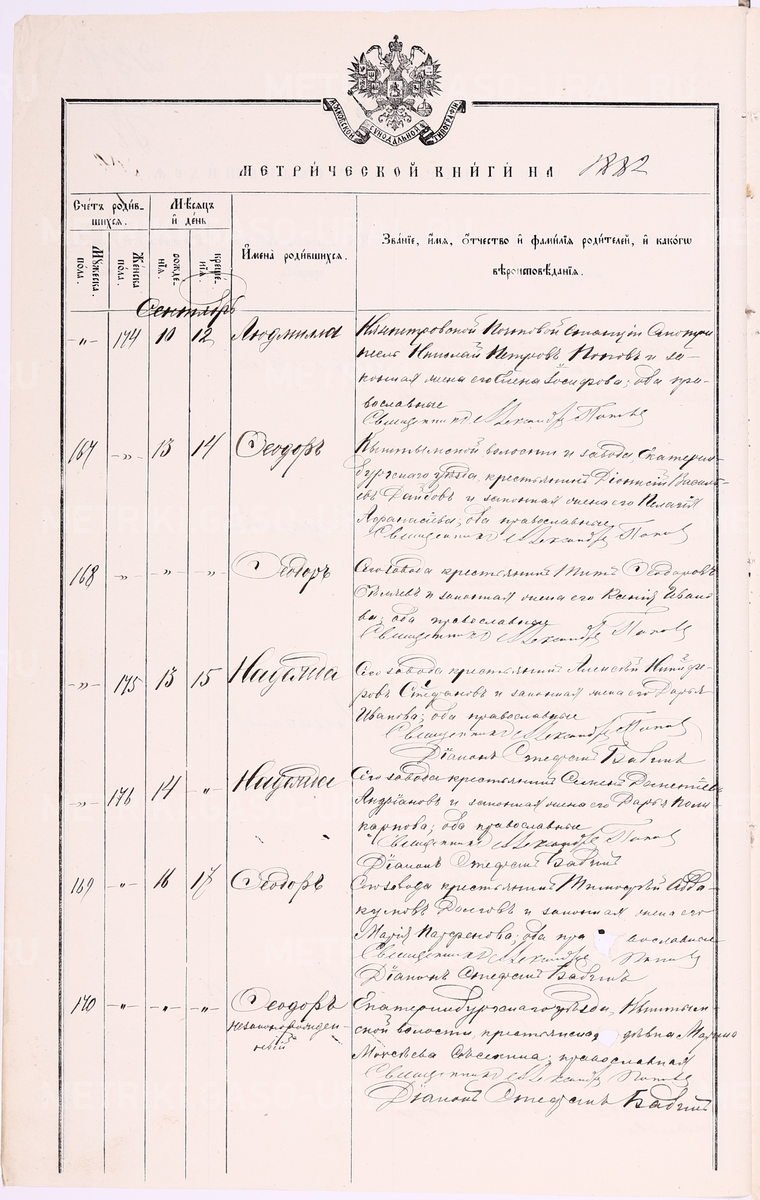 МОСКОВСКОЙ СѴНОДАЛЬНОЙ ТИПОГРАФІИ
МЕТРИ́ЧЕСКОЙ КНИ́ГИ НА 1882
Сче́тъ роди́вшихся.
Мѣ́сяцъ и де́нь
Му́жеска по́ла.
Же́нска по́ла.
рожде́нія.
креще́нія.
Имена̀ роди́вшихся.
Зва́ніе, и́мя, о́тчество и фами́лія роди́телей, и како́гѡ
вѣроисповѣ́данія.
Сентябрь
-"- 174 10 12 Людмилла
станціи Смотри
тель Николай Петровъ Поповъ и за-
конная жена его Елена Іосифова; оба пра-
вославные
Священникъ Александръ Поповъ
167 -"- 13 14 Ѳеодоръ
Кыштымской волости и завода, Екатерин-
бургскаго уѣзда, крестьянинъ Діонисій Василь-
евъ и законная жена его Пелагія
Афанасіева; оба православные
Священникъ Александръ Поповъ
168 -"- " " Ѳеодоръ
Сего завода крестьянинъ Титъ Ѳеодоровъ
и законная жена его Ксенія Ивано-
ва; оба православные
Священникъ Александръ Поповъ
-"- 175 13 15 Надежда
Сего завода крестьянинъ Алексѣй Никифо-
ровъ Стефановъ и законная жена его Дарья
Иванова; оба православные
Священникъ Александръ Поповъ
Діаконъ Стефанъ Бабинъ
" 176 14 " Надежда
Сего завода крестьянинъ Симеонъ Дементіевъ
Андріановъ и законная жена его Дарья Поли-
карпова; оба православные
Священникъ Александръ Поповъ
Діаконъ Стефанъ Бабинъ
169 -"- 16 17 Ѳеодоръ
Сего завода крестьянинъ Тимоѳей Авва-
кумовъ Долговъ и законная жена его
Марія Парѳенова; оба православные
Священникъ Александръ Поповъ
Діаконъ Стефанъ Бабинъ
170 -"- -"- -"- Ѳеодоръ
незаконнорожден-
ный
Екатеринбургскаго уѣзда, Кыштым-
ской волости, крестьянская дѣвка
Моисеева; православная
Священникъ Александръ Поповъ
Діаконъ Стефанъ Бабинъ